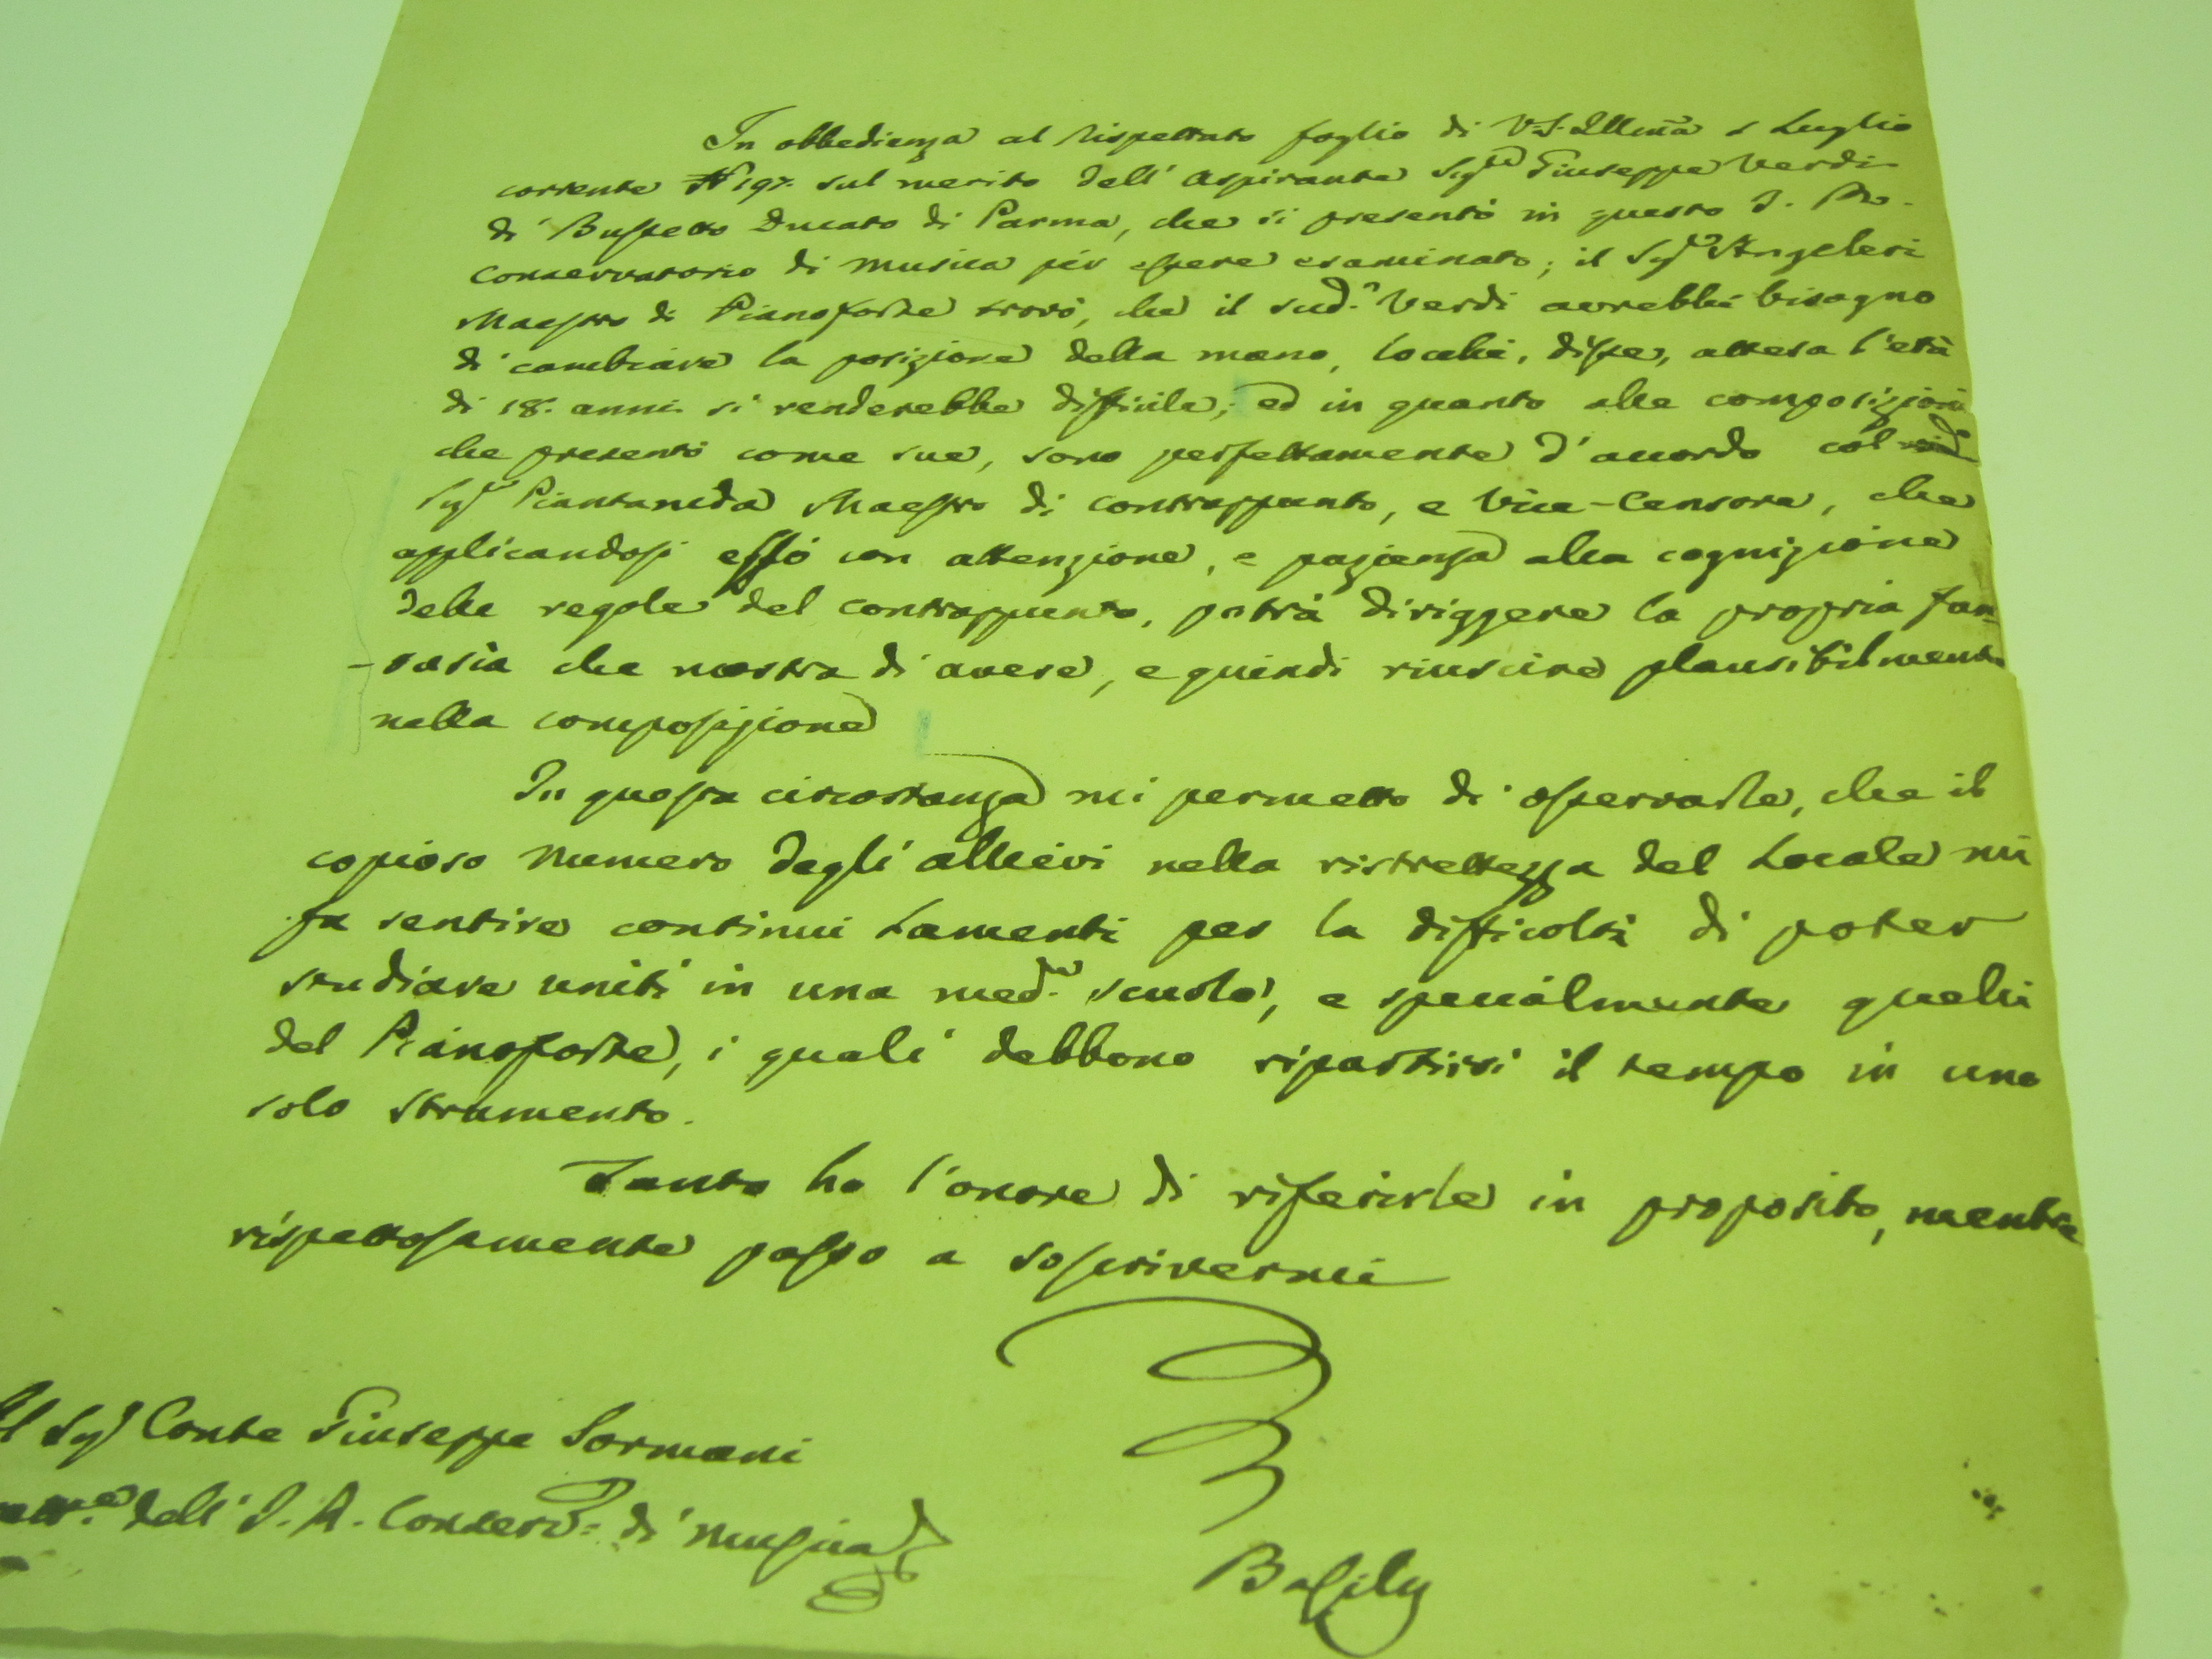 In obbedienza al rispettato foglio di V.S. Illma 2 Luglio
corrente N 197. sul merito dell' aspirante Sigr Giuseppe Verdi
di Busseto Ducato di Parma, che si presentò in questo I. R.
Conservatorio di Musica per essere esaminato; il Sigr Angeleri
Maestro di Pianoforte trovò, che il sudo Verdi avrebbe bisogno
di cambiare la posizione della mano, locchè, disse, attesa l'età
di 18. anni si renderebbe difficile; ed in quanto alle composizioni
che presentò come sue, sono perfettamente d'accordo col
Sigr Piantanida Maestro di contrappunto, e Vice-Censore, che
applicandosi esso con attenzione, e pazienza alla cognizione
delle regole del contrappunto, potrà diriggere la propria fan-
-tasia che mostra di avere, e quindi riuscire plausibilmente
nella composizione
In questa circostanza mi permetto di osservarle, che il
copioso numero degli allievi nella ristrettezza del Locale mi
fa sentire continui Lamenti per la difficoltà di poter
studiare uniti in una meda scuola, e specialmente quelli
del Pianoforte, i quali debbono ripartirsi il tempo in uno
solo strumento.
Tanto ho l'onore di riferirle in proposito, mentre
rispettosamente passo a soscrivermi
Sigr Conte Giuseppe Sormani
dell' I. R. Conservo: di Musica
Basily